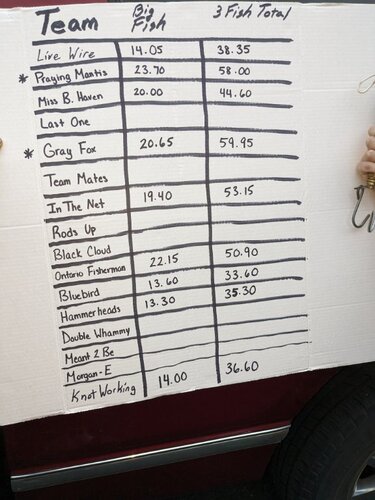 Team Big Fish 3 Fish Total
Live Wire 14.05 38.35
* Praying Mantis 23.70 58.00
Miss B. Haven 20.00 44.60
Last One
* Gray Fox 20.65 59.95
Team Mates
In The Net 19.40 53.15
Rods Up
Black Cloud
Ontario Fisherman 22.15 50.90
Bluebird 13.60 33.60
Hammerheads 13.30 35.30
Double Whammy
Meant 2 Be
Morgan-E
Knot Working 14.00 36.60